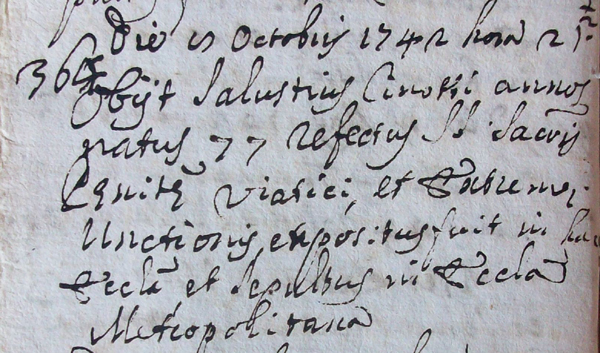 Die 17 Octobris 1742 hora 21
36
Obijt Salustius Cinotti annos
natus 77 refectus SS. Sacrijs
Penitē Viatici, et Extreme
Unctionis, expositus fuit in hac
Eccla, et sepultus in Eccla
Metropolitana